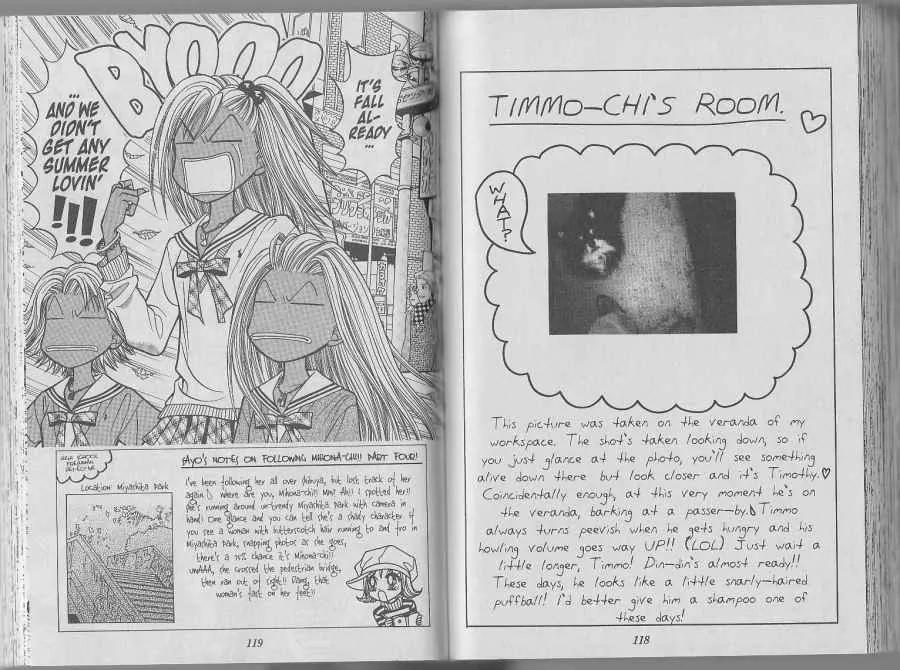 TIMMO-CHI'S ROOM.
WHAT?
This picture was taken on the veranda of my
workspace. The shot's taken looking down, so if
you just glance at the photo, you'll see something
alive down there but look closer and it's Timothy.♡
Coincidentally enough, at this very moment he's on
the veranda, barking at a passer-by. Timmo
always turns peevish when he gets hungry and his
howling volume goes way UP!! (LOL) Just wait a
little longer, Timmo! Din-din's almost ready!!
These days, he looks like a little snarly-haired
puffball! I'd better give him a shampoo one of
these days!
118
IT'S
FALL
AL-
READY
...
BYOOO
...
AND WE
DIDN'T
GET ANY
SUMMER
LOVIN'
!!!
AYO'S NOTES ON FOLLOWING MIHONA-CHI!! PART FOUR!
Location: Miyashita Park
I've been following her all over Shibuya, but lost track of her
again! Where are you, Mihona-chi!! Mm? Ah!! I spotted her!!
She's running around un-trendy Miyashita Park with camera in
hand! One glance and you can tell she's a shady character. If
you see a woman with butterscotch hair running to and fro in
Miyashita Park, snapping photos as she goes,
there's a 75% chance it's Mihona-chi!
UWAAA, she crossed the pedestrian bridge,
then ran out of sight!! Dang, that
woman's fast on her feet!!
119